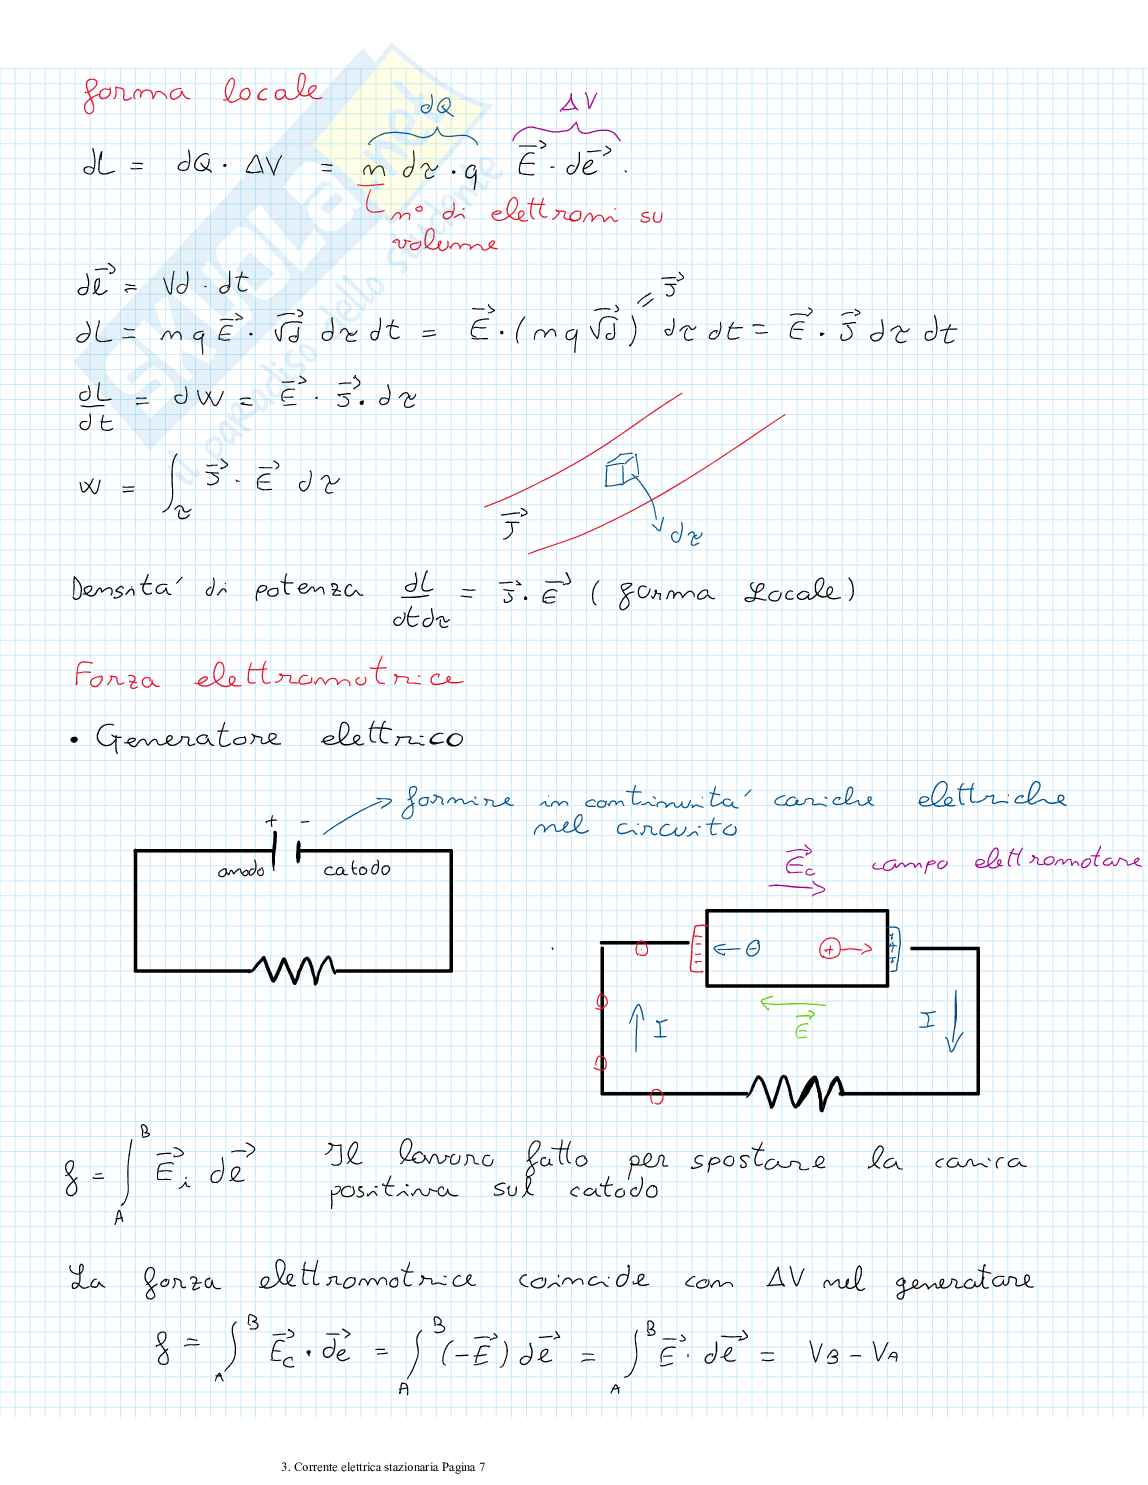 forma locale
dQ ΔV
dL = dQ · ΔV = n dτ · q E⃗ · dl⃗.
n° di elettroni su
volume
dl⃗ = Vd · dt
J⃗
dL = n q E⃗ · Vd⃗ dτ dt = E⃗ · (n q Vd⃗) dτ dt = E⃗ · J⃗ dτ dt
dL/dt = dW = E⃗ · J⃗ · dτ
W = ∫τ J⃗ · E⃗ dτ
J⃗
dτ
Densità di potenza dL/dtdτ = J⃗ · E⃗ (forma Locale)
Forza elettromotrice
• Generatore elettrico
fornire in continuità cariche elettriche
nel circuito
+ -
anodo catodo
E⃗c campo elettromotore
⊖ ⊕
E⃗
I I
f = ∫A B E⃗i dl⃗ Il lavoro fatto per spostare la carica
positiva sul catodo
La forza elettromotrice coincide con ΔV nel generatore
f = ∫A B E⃗c · dl⃗ = ∫A B (-E⃗) dl⃗ = ∫A B E⃗ · dl⃗ = VB - VA
3. Corrente elettrica stazionaria Pagina 7
SKUOLA.net
il paradiso dello studente